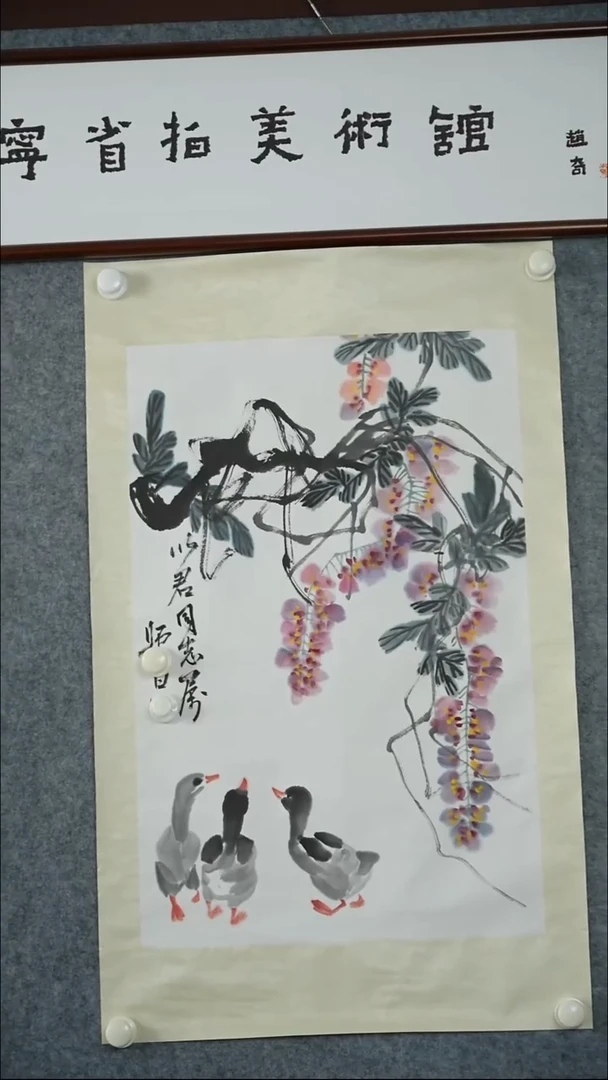 寧省拍美術館
趙奇
以君同志属
師白